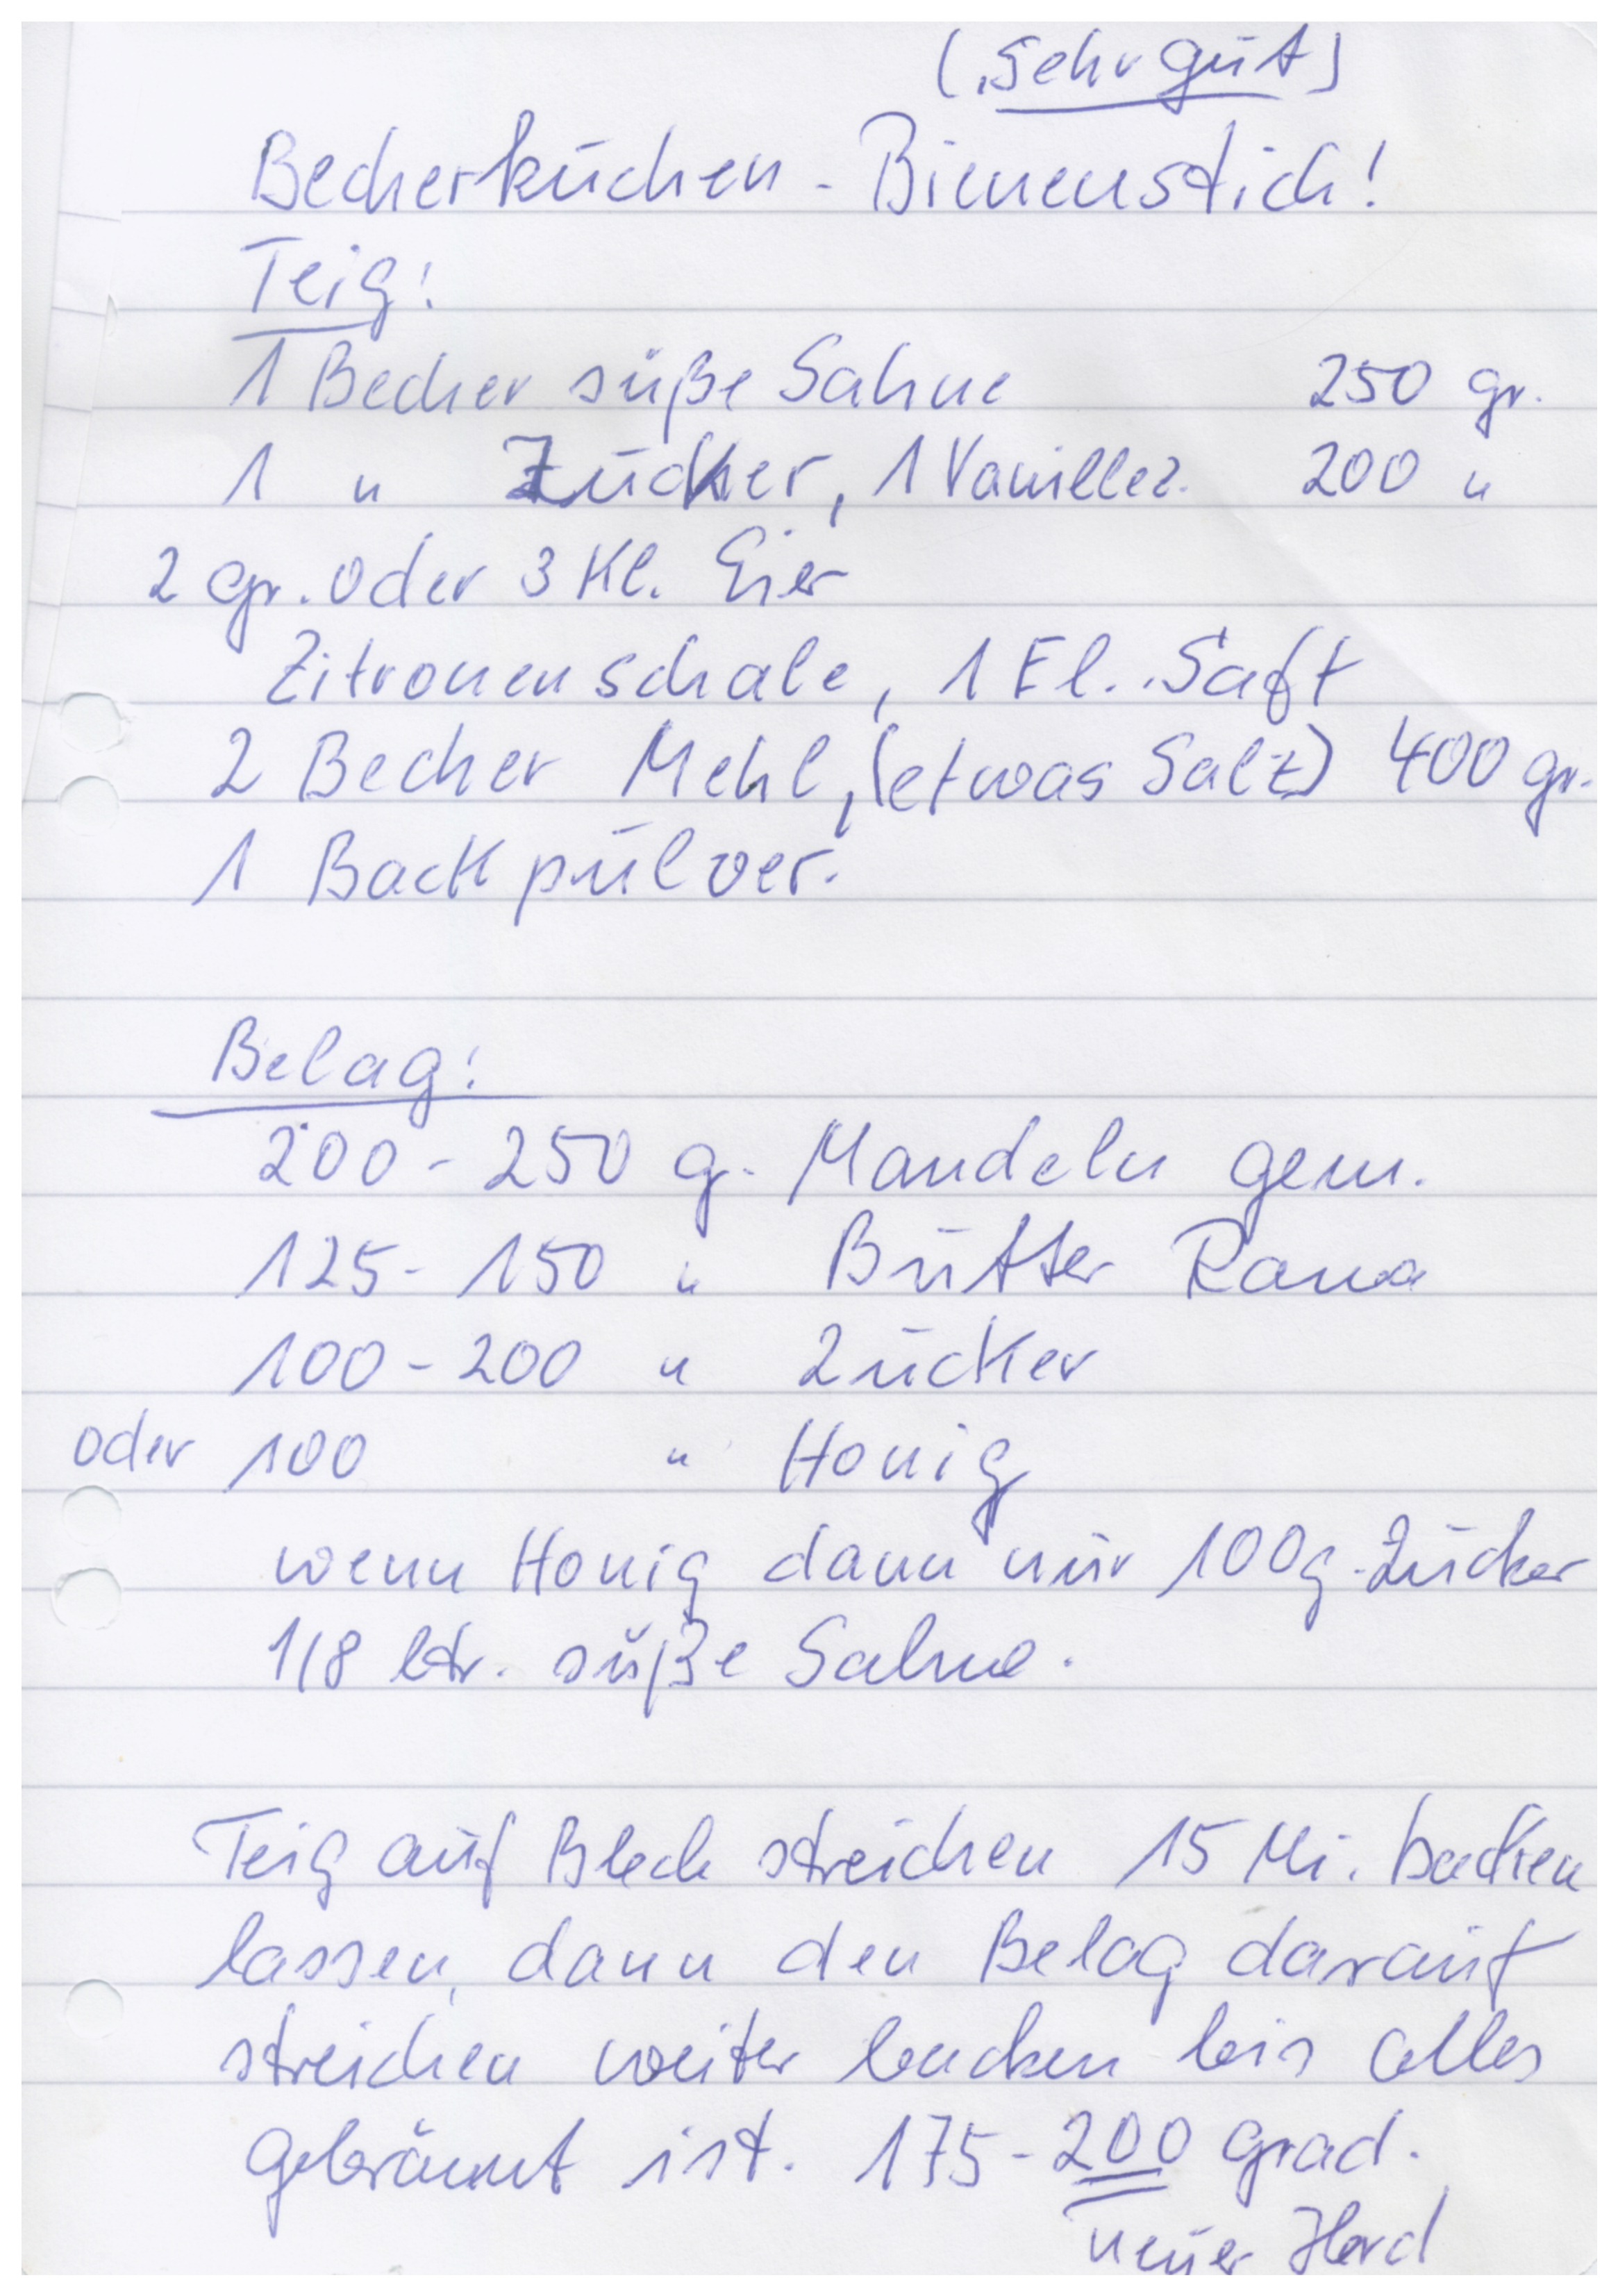 (sehr gut)
Becherkuchen - Bienenstich!
Teig:
1 Becher süße Sahne 250 gr.
1 " Zucker, 1 Vanillez. 200 "
2 gr. oder 3 Kl. Eier
Zitronenschale, 1 El. Saft
2 Becher Mehl, (etwas Salz) 400 gr.
1 Backpulver.
Belag:
200 - 250 g. Mandeln gem.
125 - 150 " Butter Rama
100 - 200 " Zucker
oder 100 " Honig
wenn Honig dann nur 100 g. Zucker
1/8 ltr. süße Sahne.
Teig auf Blech streichen 15 Mi. backen
lassen, dann den Belag darauf
streichen weiter backen bis alles
gebräunt ist. 175 - 200 Grad.
neuer Herd